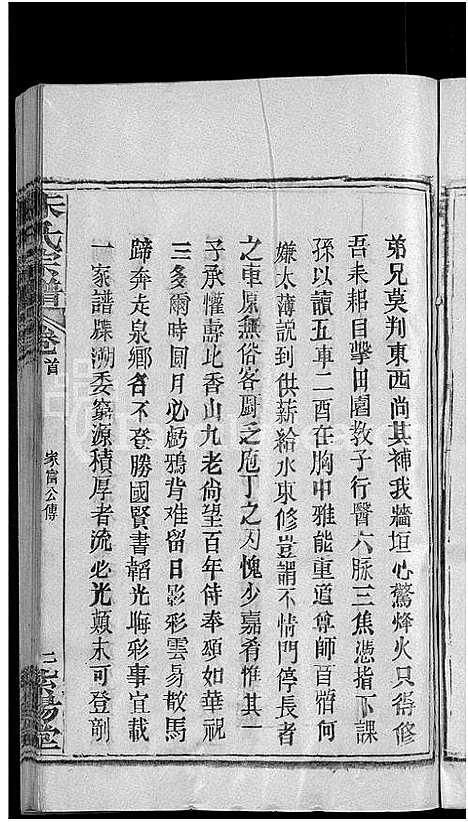 弟兄莫判東西尚其補我牆垣心驚烽火只得修
吾耒耜目擊田園教子行醫六脈三焦憑指下課
孫以讀五車二酉在胸中雅能重道尊師百犒何
嫌太薄說到供薪給水東修豈謂不情門停長者
之車原無俗客厨乏庖丁之刃愧少嘉肴惟其一
子承懽壽比香山九老尚望百年侍奉頌如華祝
三多爾時圓月必虧鴉背难留日影彩雲易散馬
蹄奔走泉鄉名不登勝國賢書韜光晦彩事宜載
一家譜牒溯委窮源積厚者流必光顛末可登剞
朱氏宗譜
卷首
家富公傳
二
紫陽堂